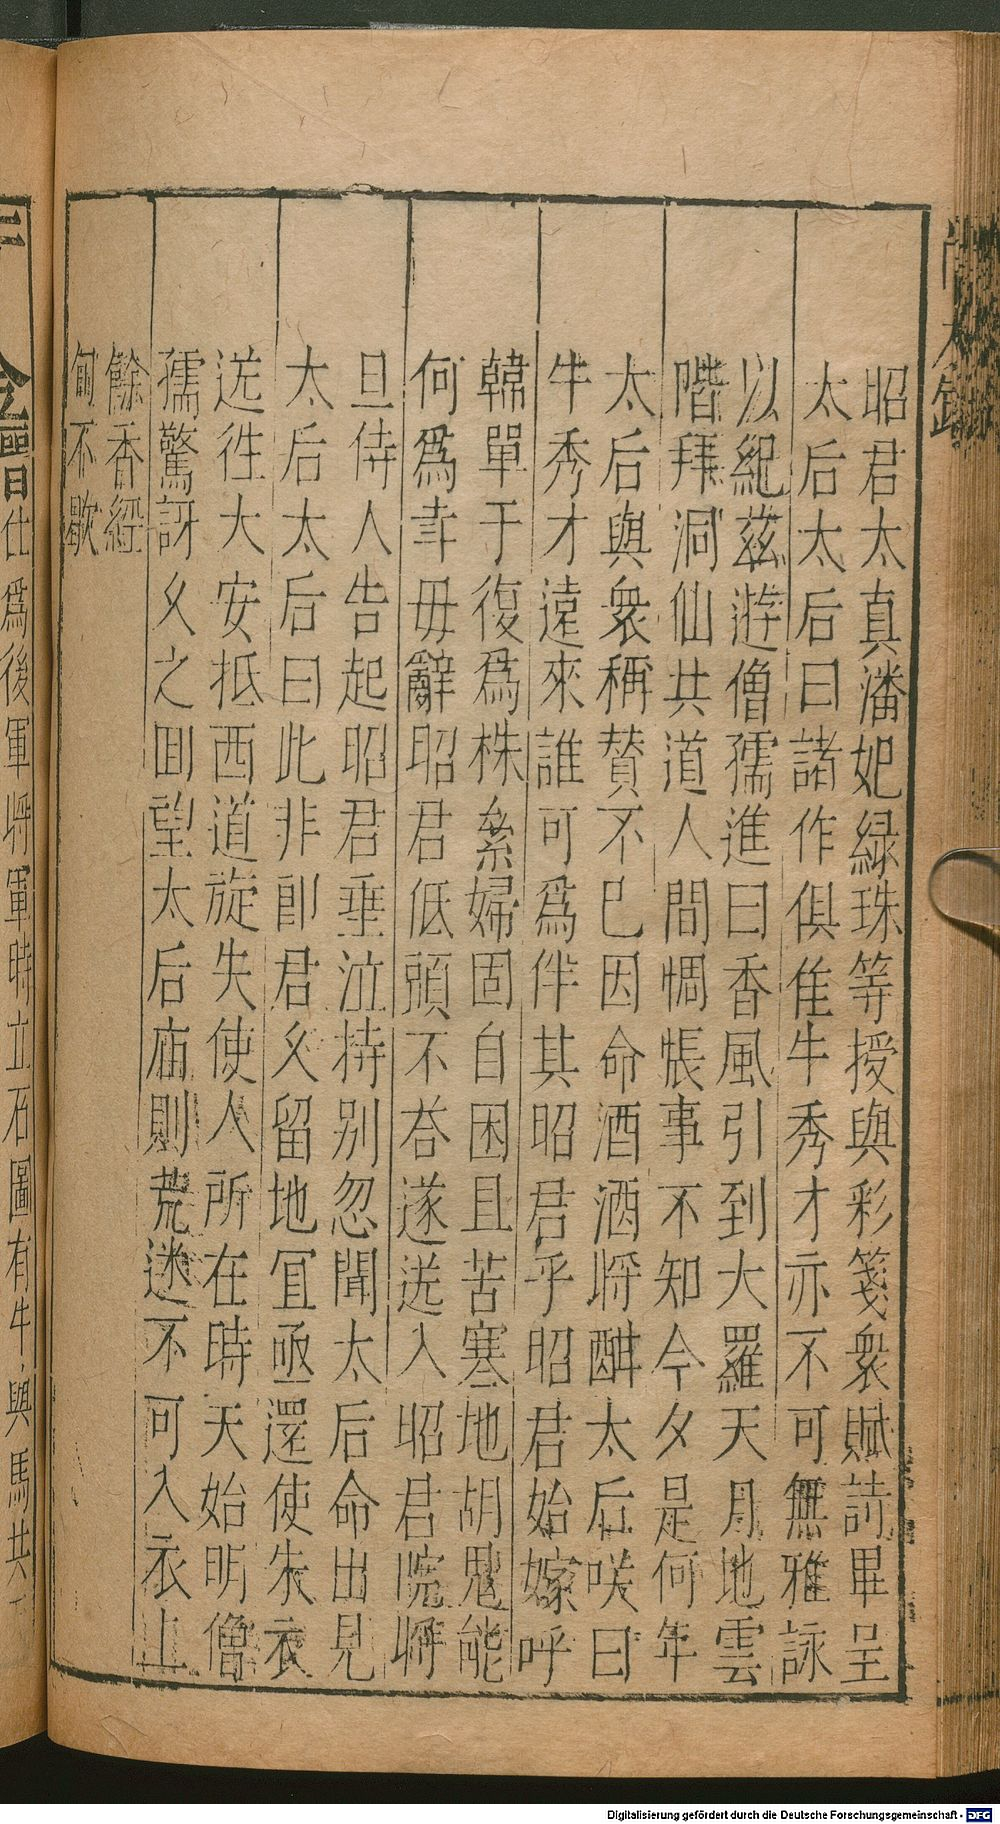 昭君太真潘妃緑珠等授與彩箋衆賦詩畢呈
太后太后曰諸作俱佳牛秀才亦不可無雅詠
以紀茲遊僧孺進曰香風引到大羅天月地雲
階拜洞仙共道人間惆悵事不知今夕是何年
太后與衆稱賛不已因命酒酒將酣太后咲曰
牛秀才遠來誰可爲伴其昭君乎昭君始嫁呼
韓單于復爲株絫婦固自困且苦寒地胡鬼能
何爲幸毋辭昭君低頭不荅遂送入昭君院將
旦侍人告起昭君垂泣持别忽聞太后命出見
太后太后曰此非郎君久留地冝亟還使朱衣
送徃大安抵西道旋失使人所在時天始明僧
孺驚訝久之囬望太后庙則荒迷不可入衣上
餘香經
旬不歇
仕爲後軍將軍時立石圖有牛與馬共
Digitalisierung gefördert durch die Deutsche Forschungsgemeinschaft - DFG